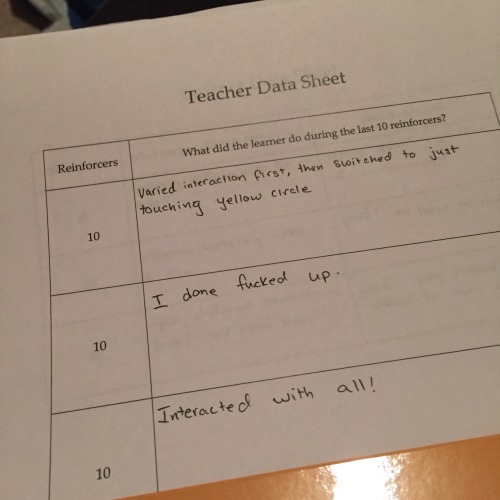 Teacher Data Sheet
Reinforcers
What did the learner do during the last 10 reinforcers?
10
Varied interaction first, then switched to just
touching yellow circle
10
I done fucked up.
10
Interacted with all!